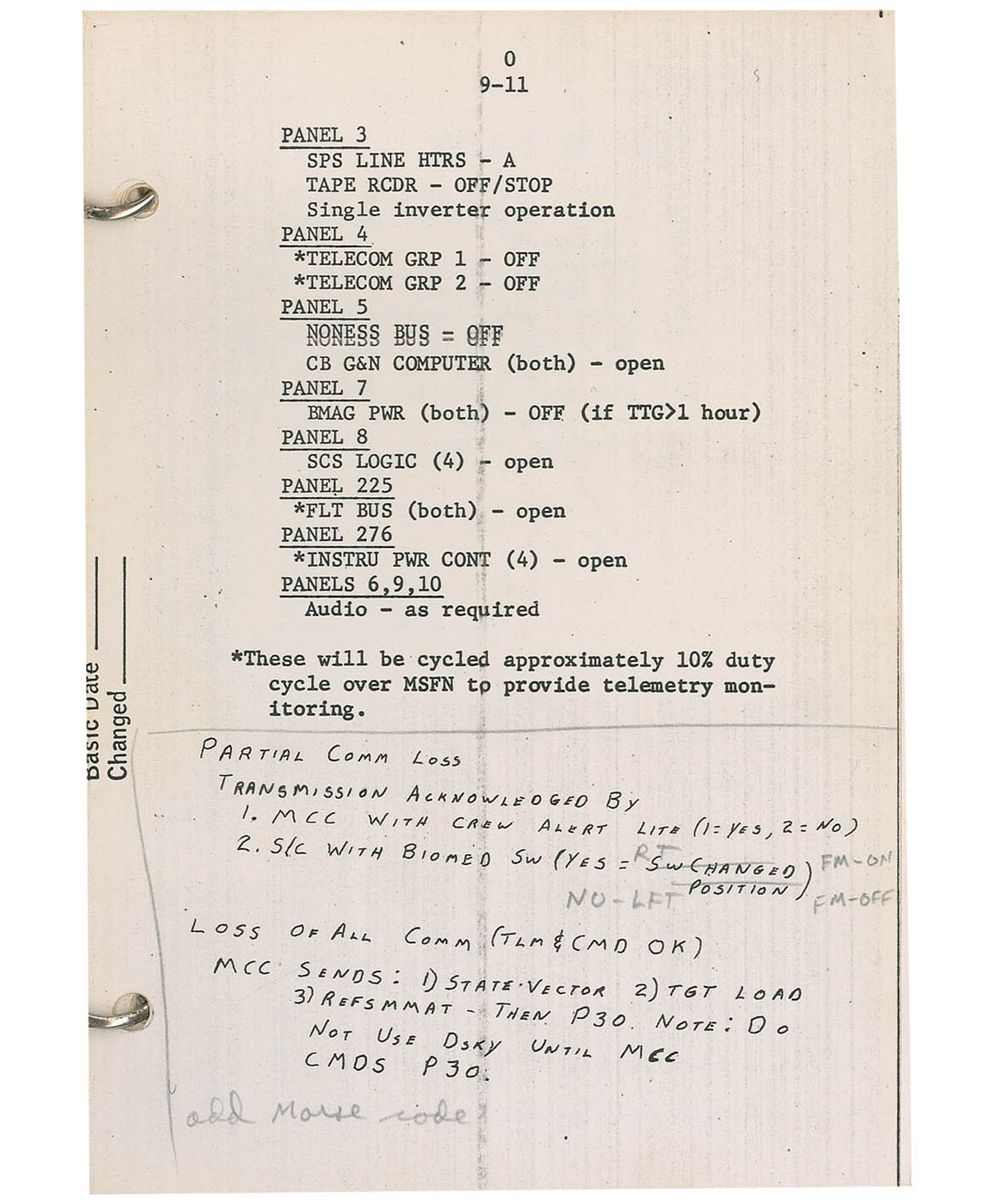 O
9-11
PANEL 3
SPS LINE HTRS - A
TAPE RCDR - OFF/STOP
Single inverter operation
PANEL 4
*TELECOM GRP 1 - OFF
*TELECOM GRP 2 - OFF
PANEL 5
NONESS BUS = OFF
CB G&N COMPUTER (both) - open
PANEL 7
BMAG PWR (both) - OFF (if TTG>1 hour)
PANEL 8
SCS LOGIC (4) - open
PANEL 225
*FLT BUS (both) - open
PANEL 276
*INSTRU PWR CONT (4) - open
PANELS 6,9,10
Audio - as required
*These will be cycled approximately 10% duty
cycle over MSFN to provide telemetry mon-
itoring.
Basic Date
Changed
PARTIAL COMM LOSS
TRANSMISSION ACKNOWLEDGED BY
1. MCC WITH CREW ALERT LITE (1=YES, 2=NO)
2. S/C WITH BIOMED SW (YES = RT SW CHANGED POSITION) FM-ON
NO-LFT FM-OFF
LOSS OF ALL COMM (TLM & CMD OK)
MCC SENDS: 1) STATE·VECTOR 2) TGT LOAD
3) REFSMMAT - THEN P30. NOTE: DO
NOT USE DSKY UNTIL MCC
CMDS P30.
add Morse code